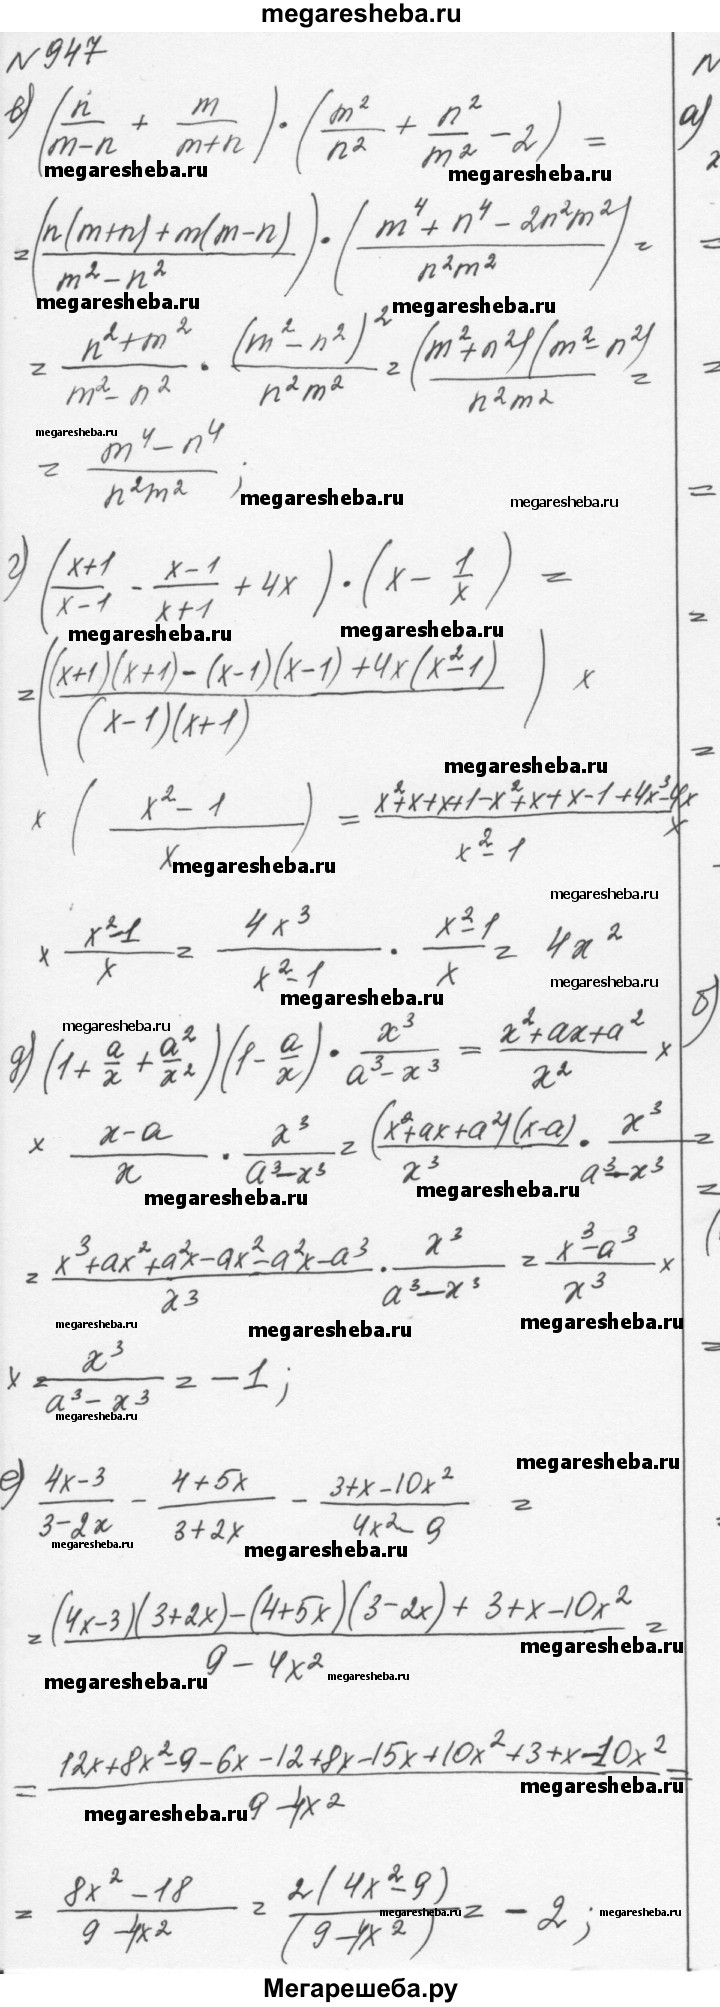 megaresheba.ru
№947
в) (n/(m-n) + m/(m+n)) · (m²/n² + n²/m² - 2) =
megaresheba.ru megaresheba.ru
= ((n(m+n)+m(m-n))/(m²-n²)) · ((m⁴+n⁴-2n²m²)/(n²m²)) =
megaresheba.ru megaresheba.ru
= (n²+m²)/(m²-n²) · (m²-n²)²/(n²m²) = (m²+n²)(m²-n²)/(n²m²) =
megaresheba.ru
= (m⁴-n⁴)/(n²m²);
megaresheba.ru megaresheba.ru
г) ((x+1)/(x-1) - (x-1)/(x+1) + 4x) · (x - 1/x) =
megaresheba.ru megaresheba.ru
= (((x+1)(x+1)-(x-1)(x-1)+4x(x²-1))/((x-1)(x+1))) ×
megaresheba.ru
× ((x²-1)/x) = (x²+x+x+1-x²+x+x-1+4x³-4x)/(x²-1) ×
megaresheba.ru
megaresheba.ru
× (x²-1)/x = 4x³/(x²-1) · (x²-1)/x = 4x²
megaresheba.ru megaresheba.ru
megaresheba.ru
д) (1+a/x+a²/x²)(1-a/x) · x³/(a³-x³) = (x²+ax+a²)/x² ×
× (x-a)/x · x³/(a³-x³) = (x²+ax+a²)(x-a)/x³ · x³/(a³-x³) =
megaresheba.ru megaresheba.ru
= (x³+ax²+a²x-ax²-a²x-a³)/x³ · x³/(a³-x³) = (x³-a³)/x³ ×
megaresheba.ru megaresheba.ru megaresheba.ru
× x³/(a³-x³) = -1;
megaresheba.ru
megaresheba.ru
е) (4x-3)/(3-2x) - (4+5x)/(3+2x) - (3+x-10x²)/(4x²-9) =
megaresheba.ru megaresheba.ru
= ((4x-3)(3+2x)-(4+5x)(3-2x)+3+x-10x²)/(9-4x²) =
megaresheba.ru megaresheba.ru megaresheba.ru
= (12x+8x²-9-6x-12+8x-15x+10x²+3+x-10x²)/(9-4x²) =
megaresheba.ru megaresheba.ru
= (8x²-18)/(9-4x²) = 2(4x²-9)/(9-4x²) = -2;
megaresheba.ru megaresheba.ru
Мегарешеба.ру